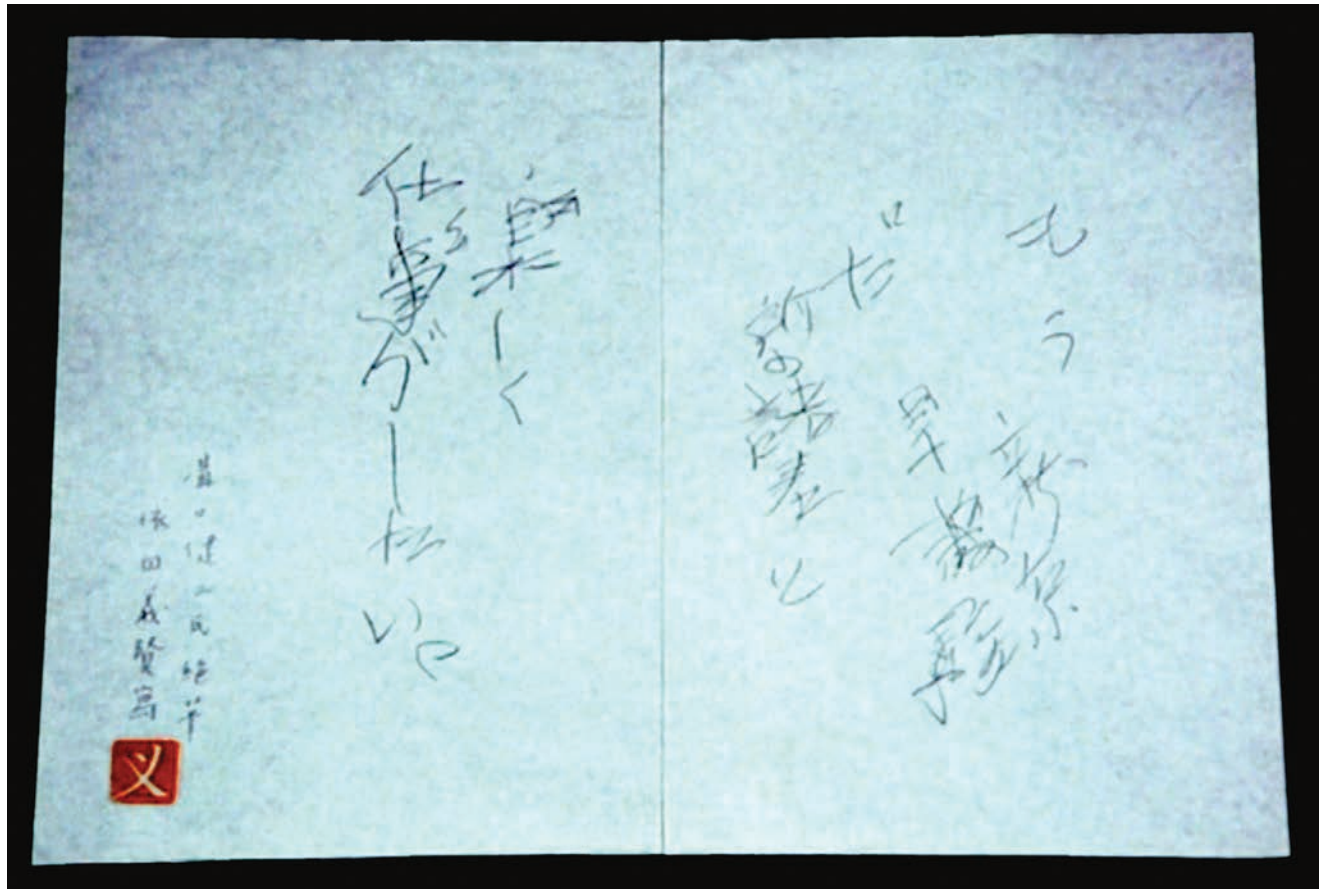 もう新涼
だ
早撮影
所の諸君と
楽しく
仕事がしたい。
溝口健二氏絶筆
依田義賢寫
义